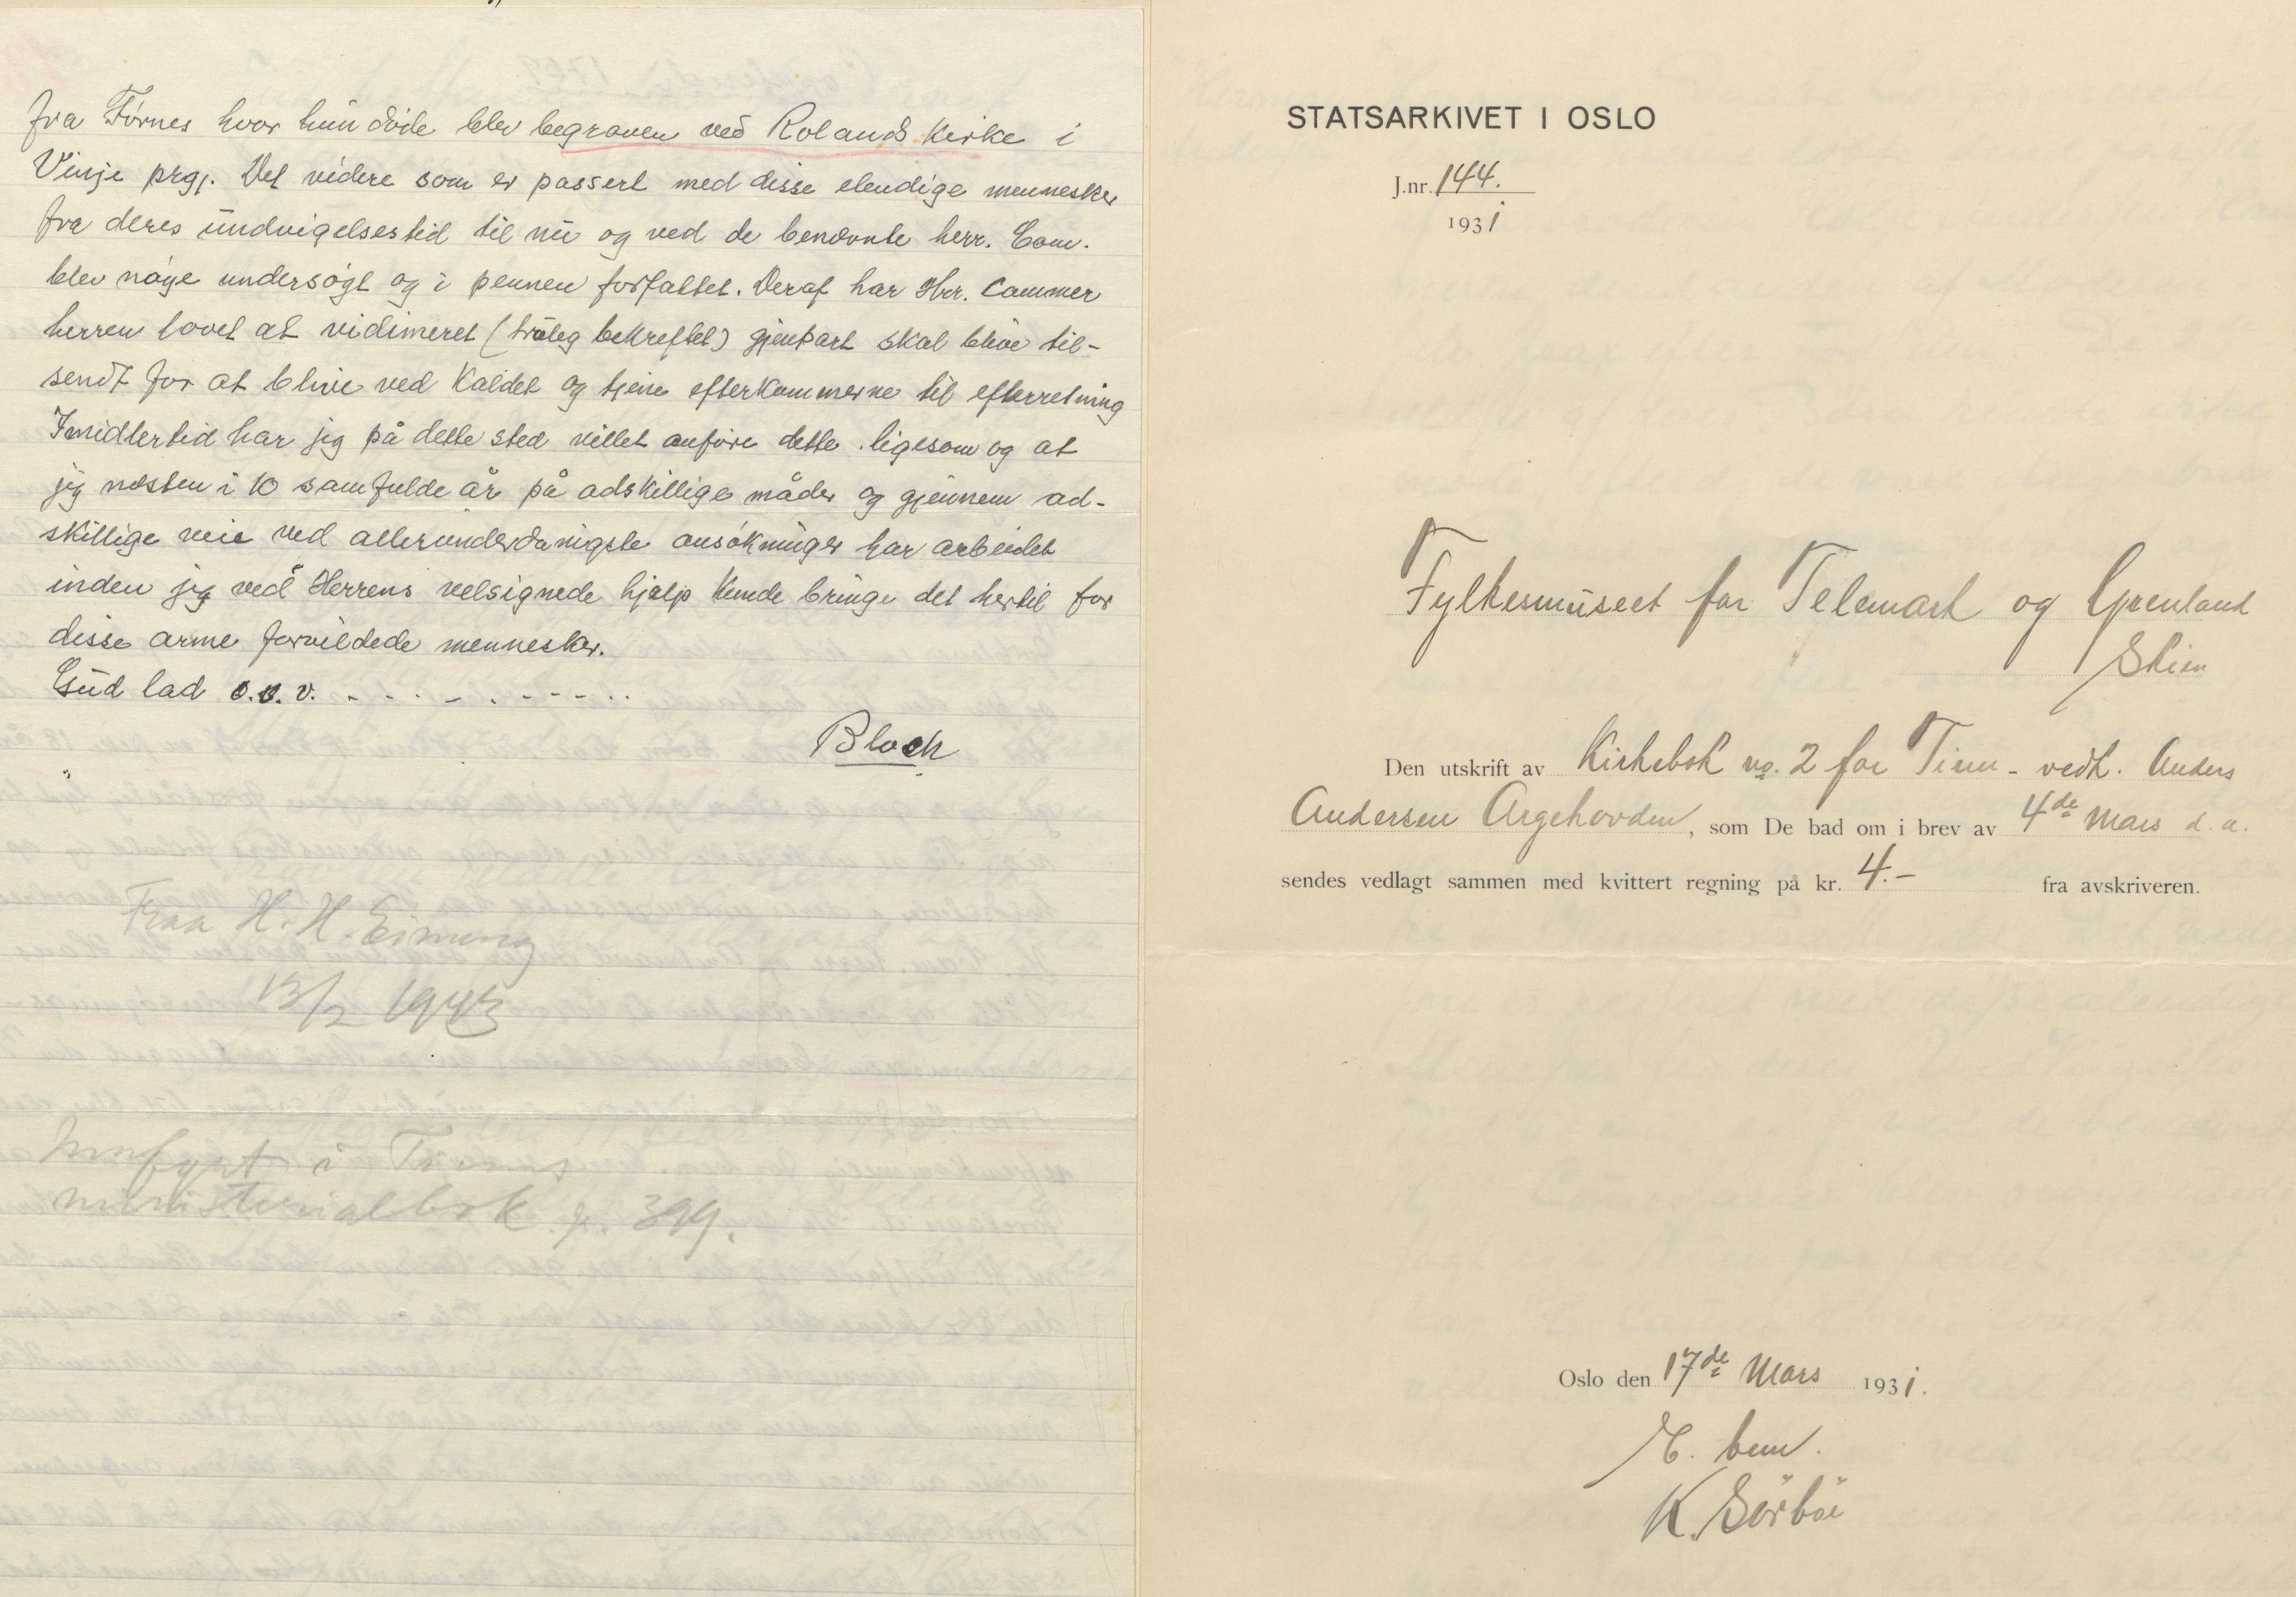 fra Förnes hvor hun döde blev begraven ved Rolands Kirke i
Vinje prgj. Det videre som er passert med disse elendige mennesker
fra deres undvigelsestid til nu og ved de benævnte herr. Com.
blev nöye undersögt og i pennen forfattet. Deraf har Hrr. Cammer
herren lovet at vidimeret (truleg bekreftet) gjenpart skal blive til-
sendt for at blive ved Kaldet og tjene efterkommerne til efterretning
Imidlertid har jeg på dette sted villet anföre dette . ligesom og at
jeg næsten i 10 samfulde år på adskillige måder og gjennem ad-
skillige veie ved allerunderdanigste ansökninger har arbeidet
inden jeg ved Herrens velsignede hjælp kunde bringe det hertil for
disse arme forvildede mennesker.
Gud lad o.s.v. - - - - - - - - - -
Bloch
Fraa H. H. Einung
13/2 1943
Innfört i Tinns
ministerialbok p. 399.
STATSARKIVET I OSLO
J.nr. 144.
1931
Fylkesmuseet for Telemark og Grenland
Skien
Den utskrift av Kirkebok no. 2 for Tinn - vedk. Anders
Andersen Argehovden, som De bad om i brev av 4de Mars d. a.
sendes vedlagt sammen med kvittert regning på kr. 4.- fra avskriveren.
Oslo den 17de Mars 1931.
E. bem.
K. Sörböe